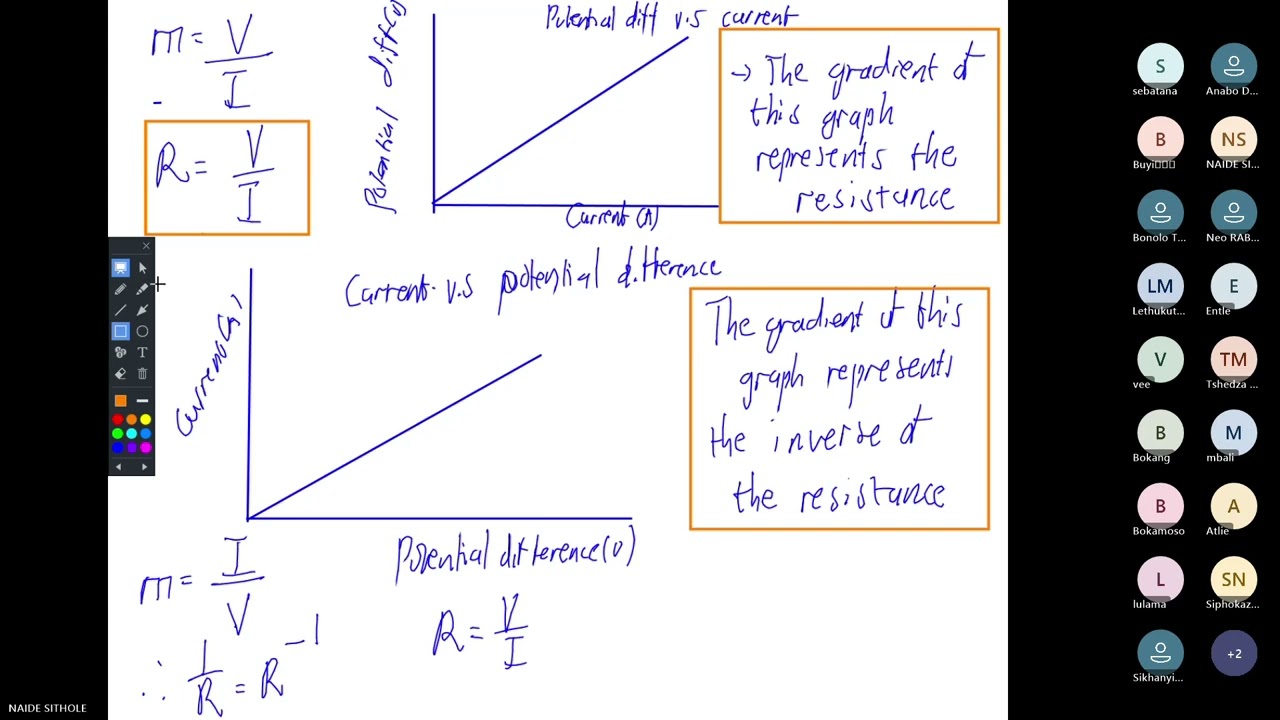 m = V
I
R = V
I
Potential diff(V)
Potential diff v.s current
Current (A)
→ The gradient of
this graph
represents the
resistance
Current v.s potential difference
Current(A)
Potential difference(V)
The gradient of this
graph represents
the inverse of
the resistance
m = I
V
∴ 1
R = R⁻¹
R = V
I
T
S
sebatana
Anabo D...
B
Buyi▯▯▯
NS
NAIDE SI...
Bonolo T...
Neo RAB...
LM
Lethukut...
E
Entle
V
vee
TM
Tshedza ...
B
Bokang
M
mbali
B
Bokamoso
A
Atlie
L
lulama
SN
Siphokaz...
Sikhanyi...
+2
NAIDE SITHOLE